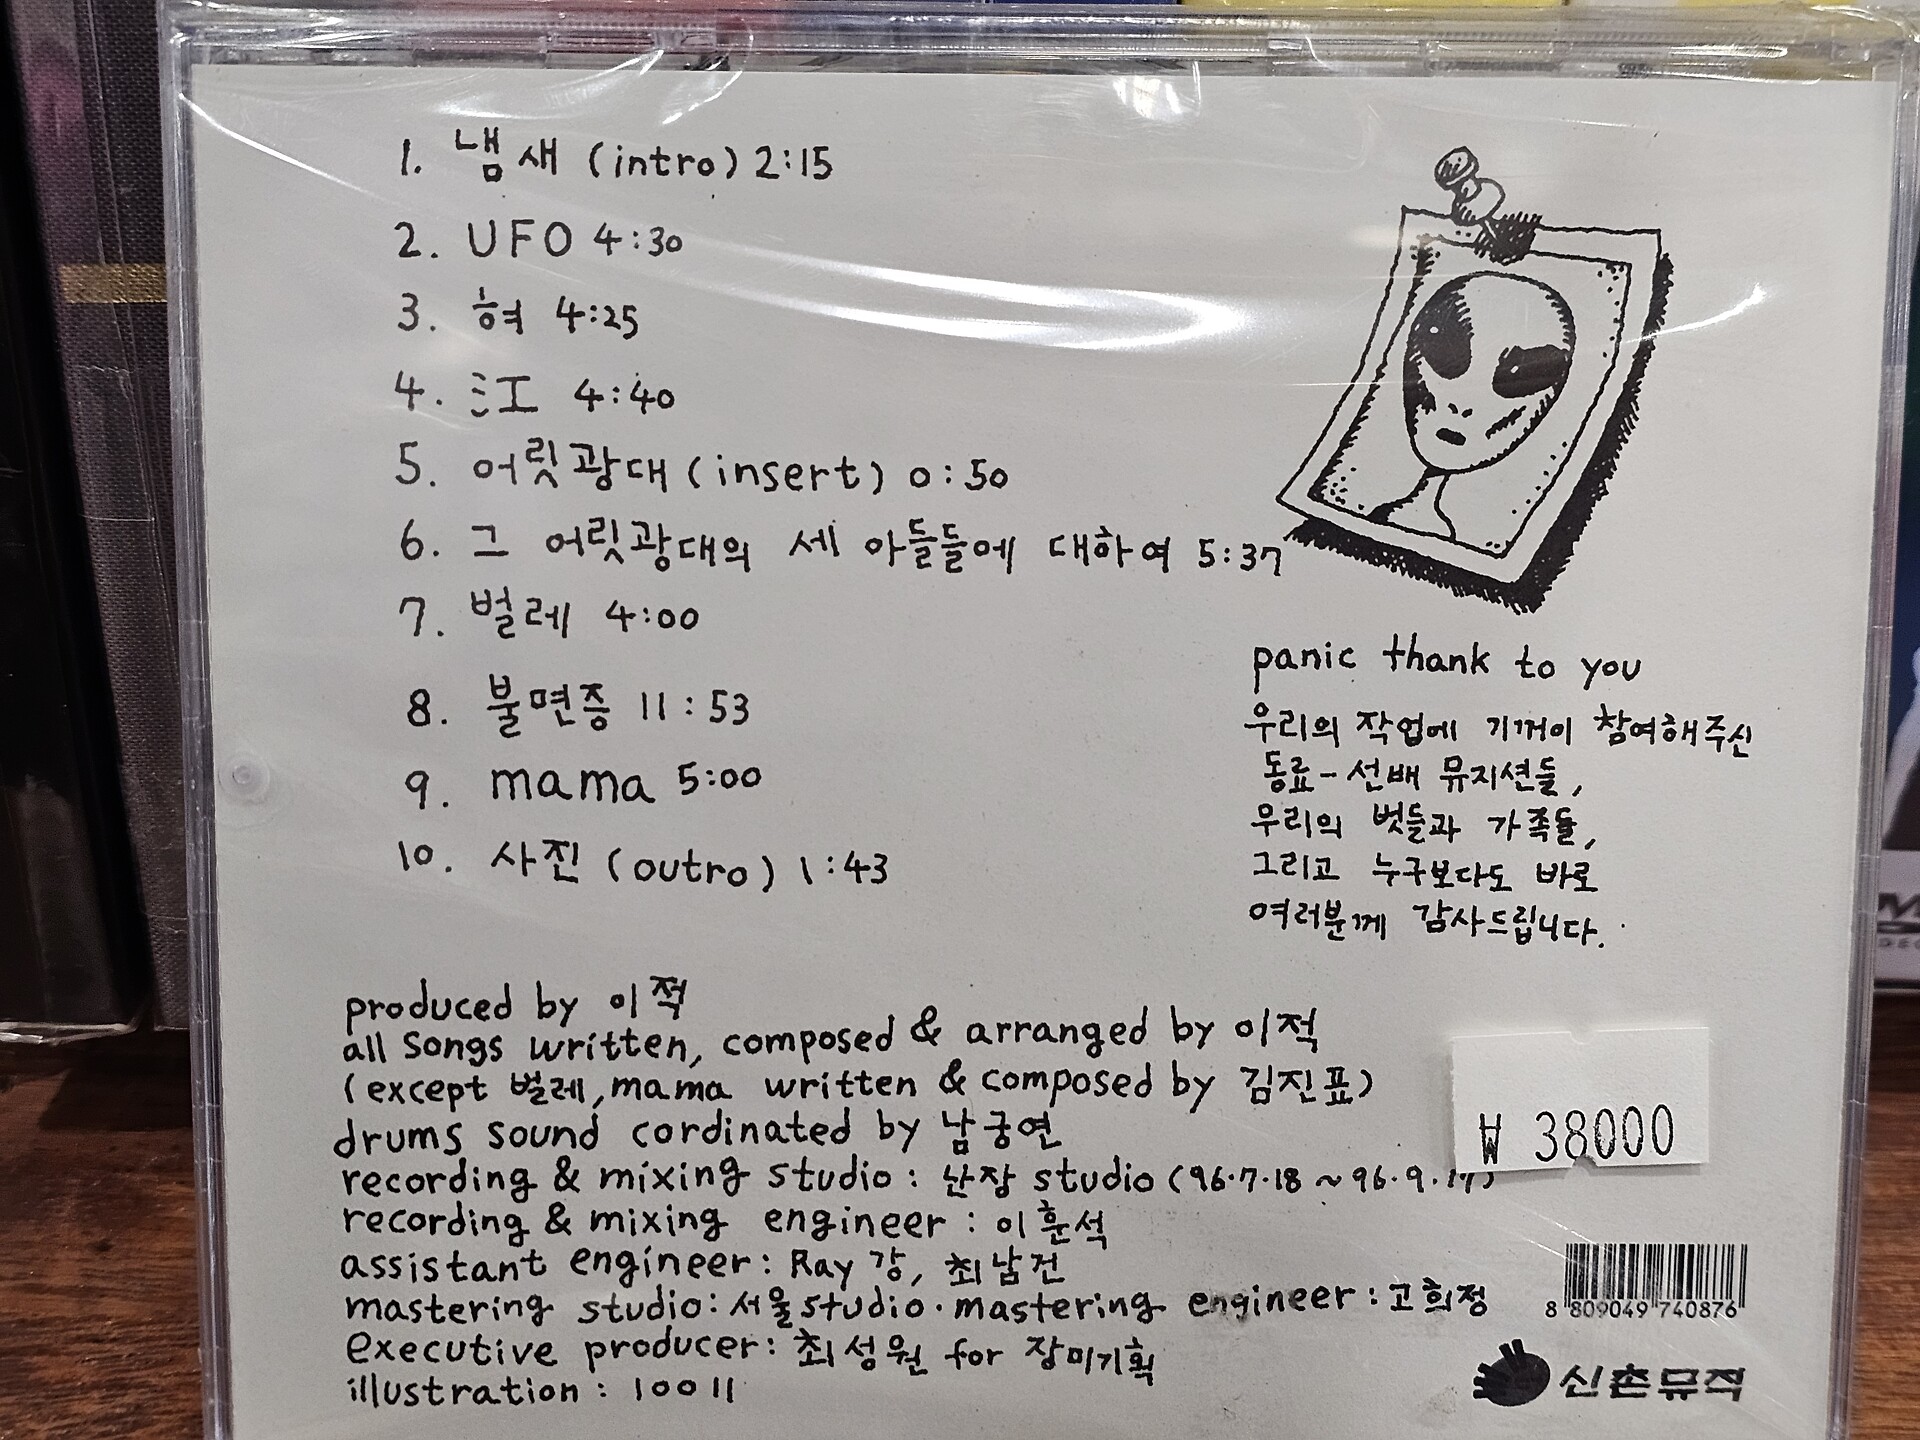 1. 냄새 (intro) 2:15
2. UFO 4:30
3. 혀 4:25
4. 江 4:40
5. 어릿광대 (insert) 0:50
6. 그 어릿광대의 세 아들들에 대하여 5:37
7. 벌레 4:00
8. 불면증 11:53
9. mama 5:00
10. 사진 (outro) 1:43
panic thank to you
우리의 작업에 기꺼이 참여해주신
동료-선배 뮤지션들,
우리의 벗들과 가족들,
그리고 누구보다도 바로
여러분께 감사드립니다.
produced by 이적
all songs written, composed & arranged by 이적
(except 벌레, mama written & composed by 김진표)
drums sound cordinated by 남궁연
recording & mixing studio : 난장 studio (96.7.18 ~ 96.9.
recording & mixing engineer : 이훈석
assistant engineer : Ray 강, 최남건
mastering studio : 서울studio. mastering engineer : 고희정
executive producer : 최성원 for 장미기획
illustration : 10011
₩ 38000
8 809049 740876
신촌뮤직